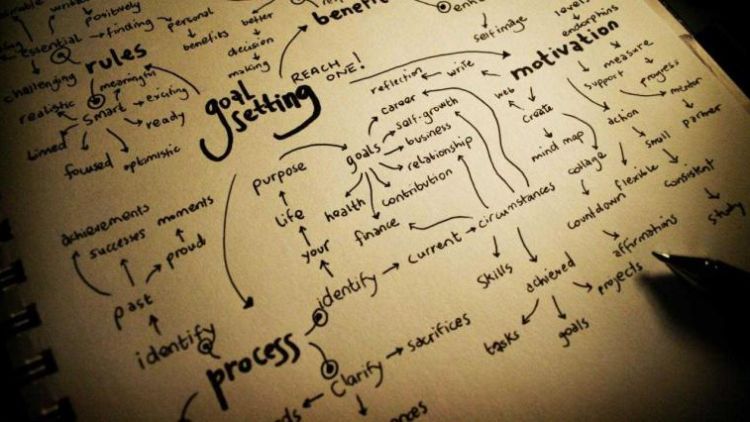 positively
essential
finding
personal
benefits
better
decision
making
benefit
self image
levels
endorphins
rules
challenging
meaningful
realistic
smart
exciting
ready
timed
focused
optimistic
goal
setting
REACH
ONE!
motivation
reflection
write
web
create
mind map
collage
support
measure
progress
mentor
action
small
partner
flexible
consistent
countdown
affirmations
study
projects
purpose
life
your
identify
goals
career
self-growth
business
relationship
contribution
health
finance
current
circumstances
skills
achieved
tasks
goals
achievements
successes
moments
proud
past
identify
process
clarify
sacrifices